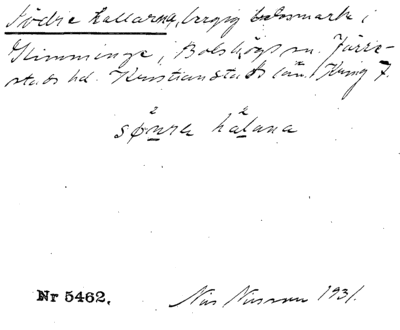 Södre hallarna, bergig betesmark i
Glimminge, Bolshögs sn. Järre-
stads hd. Kristianstads län. Kring 7.
sønra halana
Nr 5462.
Nils Nilsson 1931.